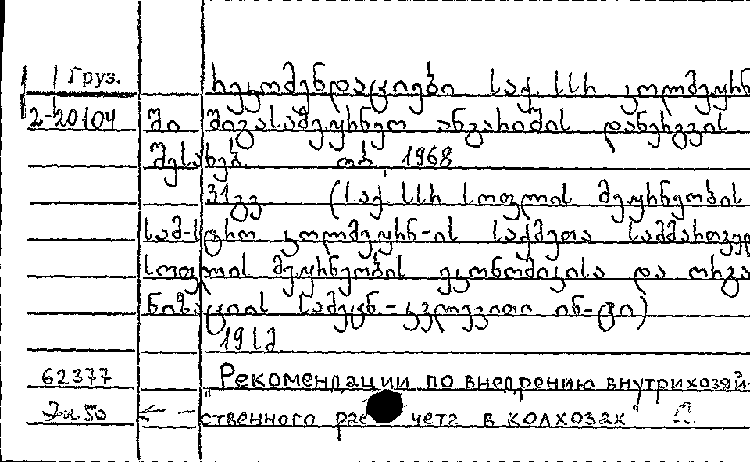 Груз. რეკომენდაციები საქ. სსრ კოლმეურნ
2-20104 ში შიგასამეურნეო ანგარიშის დანერგვის
შესახებ. თბ., 1968
31 გვ. (საქ. სსრ სოფლის მეურნეობის
სამ-სტრო კოლმეურნ-ის საქმეთა სამმართველ
სოფლის მეურნეობის ეკონომიკისა და ორგა
ნიზაციის სამეცნ.-კვლევითი ინ-ტი)
62377 "Рекомендации по внедрению внутрихозяй-
ственного расчета в колхозах"